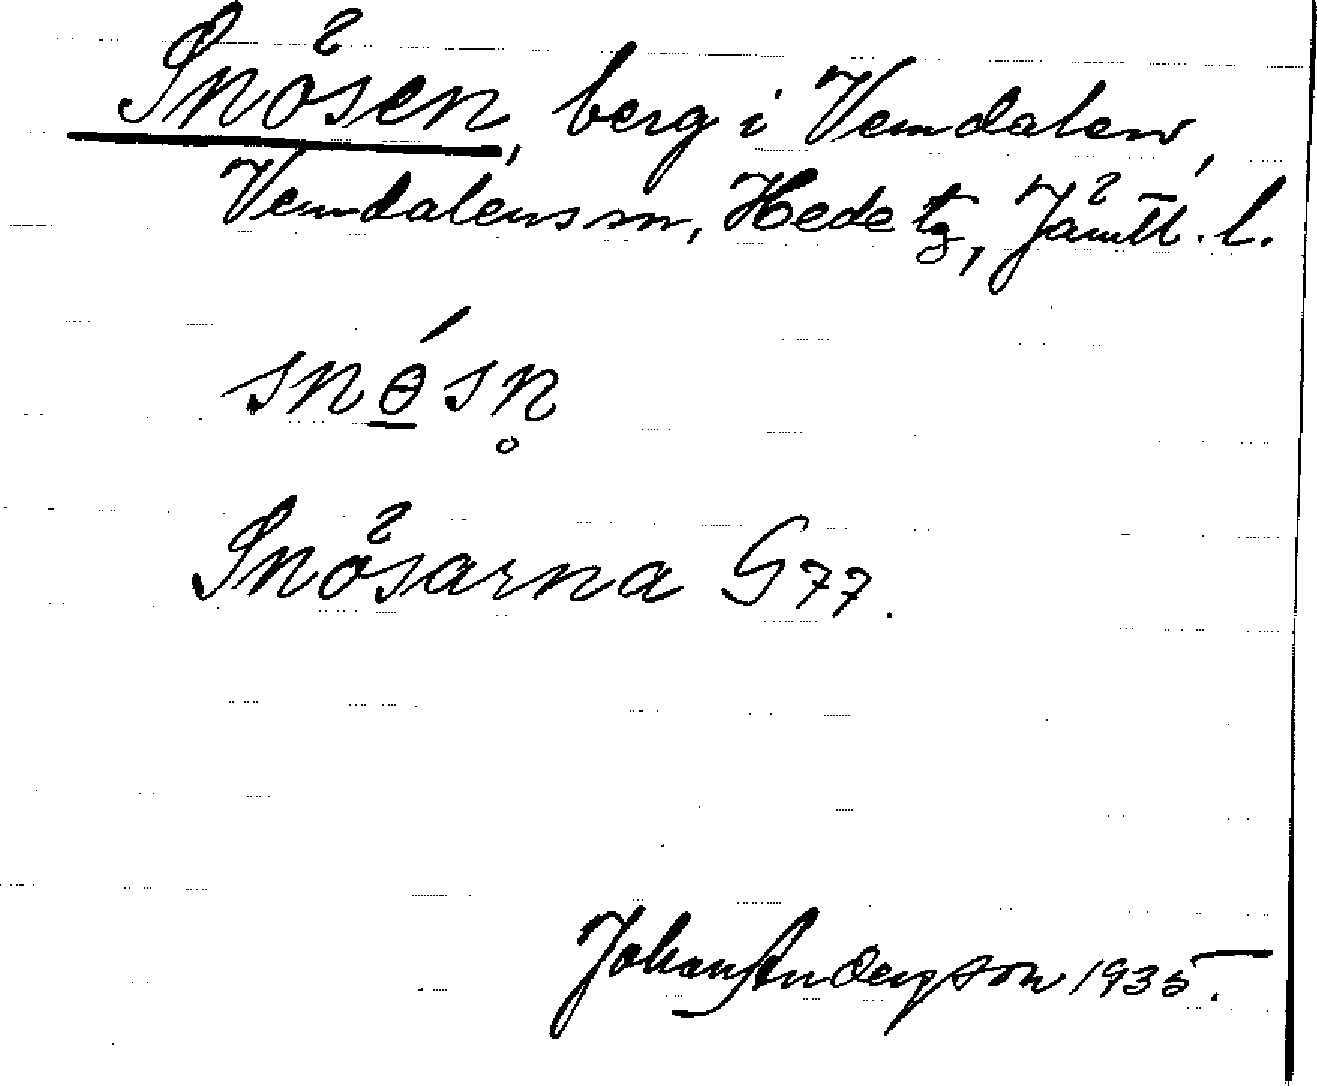 Snösen, berg i Vemdalen,
Vemdalens sn, Hede tg, Jämtl. l.
snɵ̱́sn̥
Snösarna G 77.
Johan Anderson 1935.